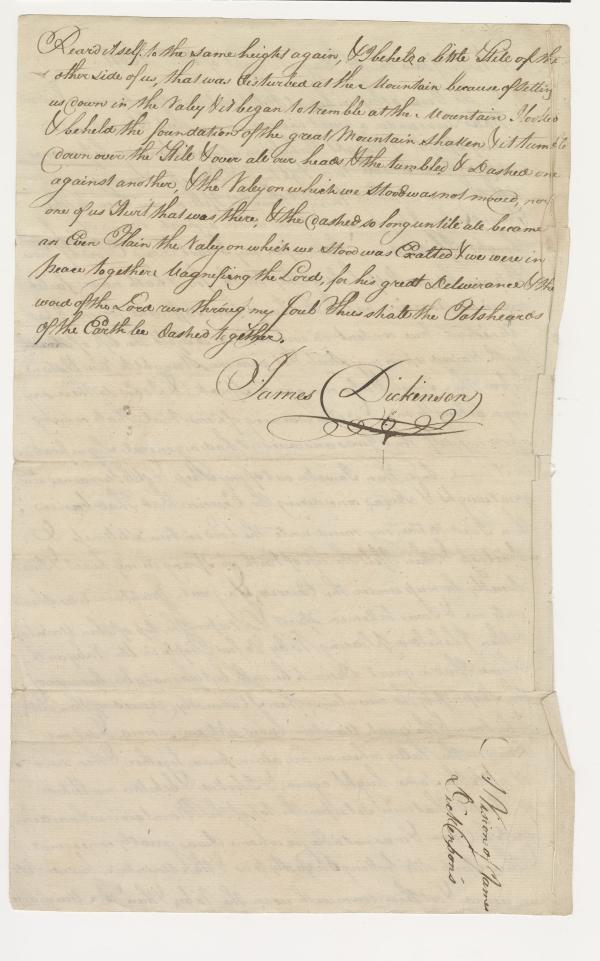 Reard itself to the same height again, & I beheld a little Hile of the
other side of us, that was disturbed at the Mountain because of setting
us down in the Valey & it began to tremble at the Mountain I looked
& beheld the foundation of the great Mountain shaken & it tumbled
down over the Hile & over all our heads & the tumbled & Dashed one
against another, & the Valey on which we stood was not moved, nor
one of us Hurt that was there, & the dashed so long untill all became
an Even Plain the Valey on which we stood was Exalted & we were in
peace together Magnifiing the Lord, for his great Deliverance & the
word of the Lord run throug my soul Thus shall the Potsheards
of the Earth be dashed together.
James Dickinson
A Vision of James
Dickinson's